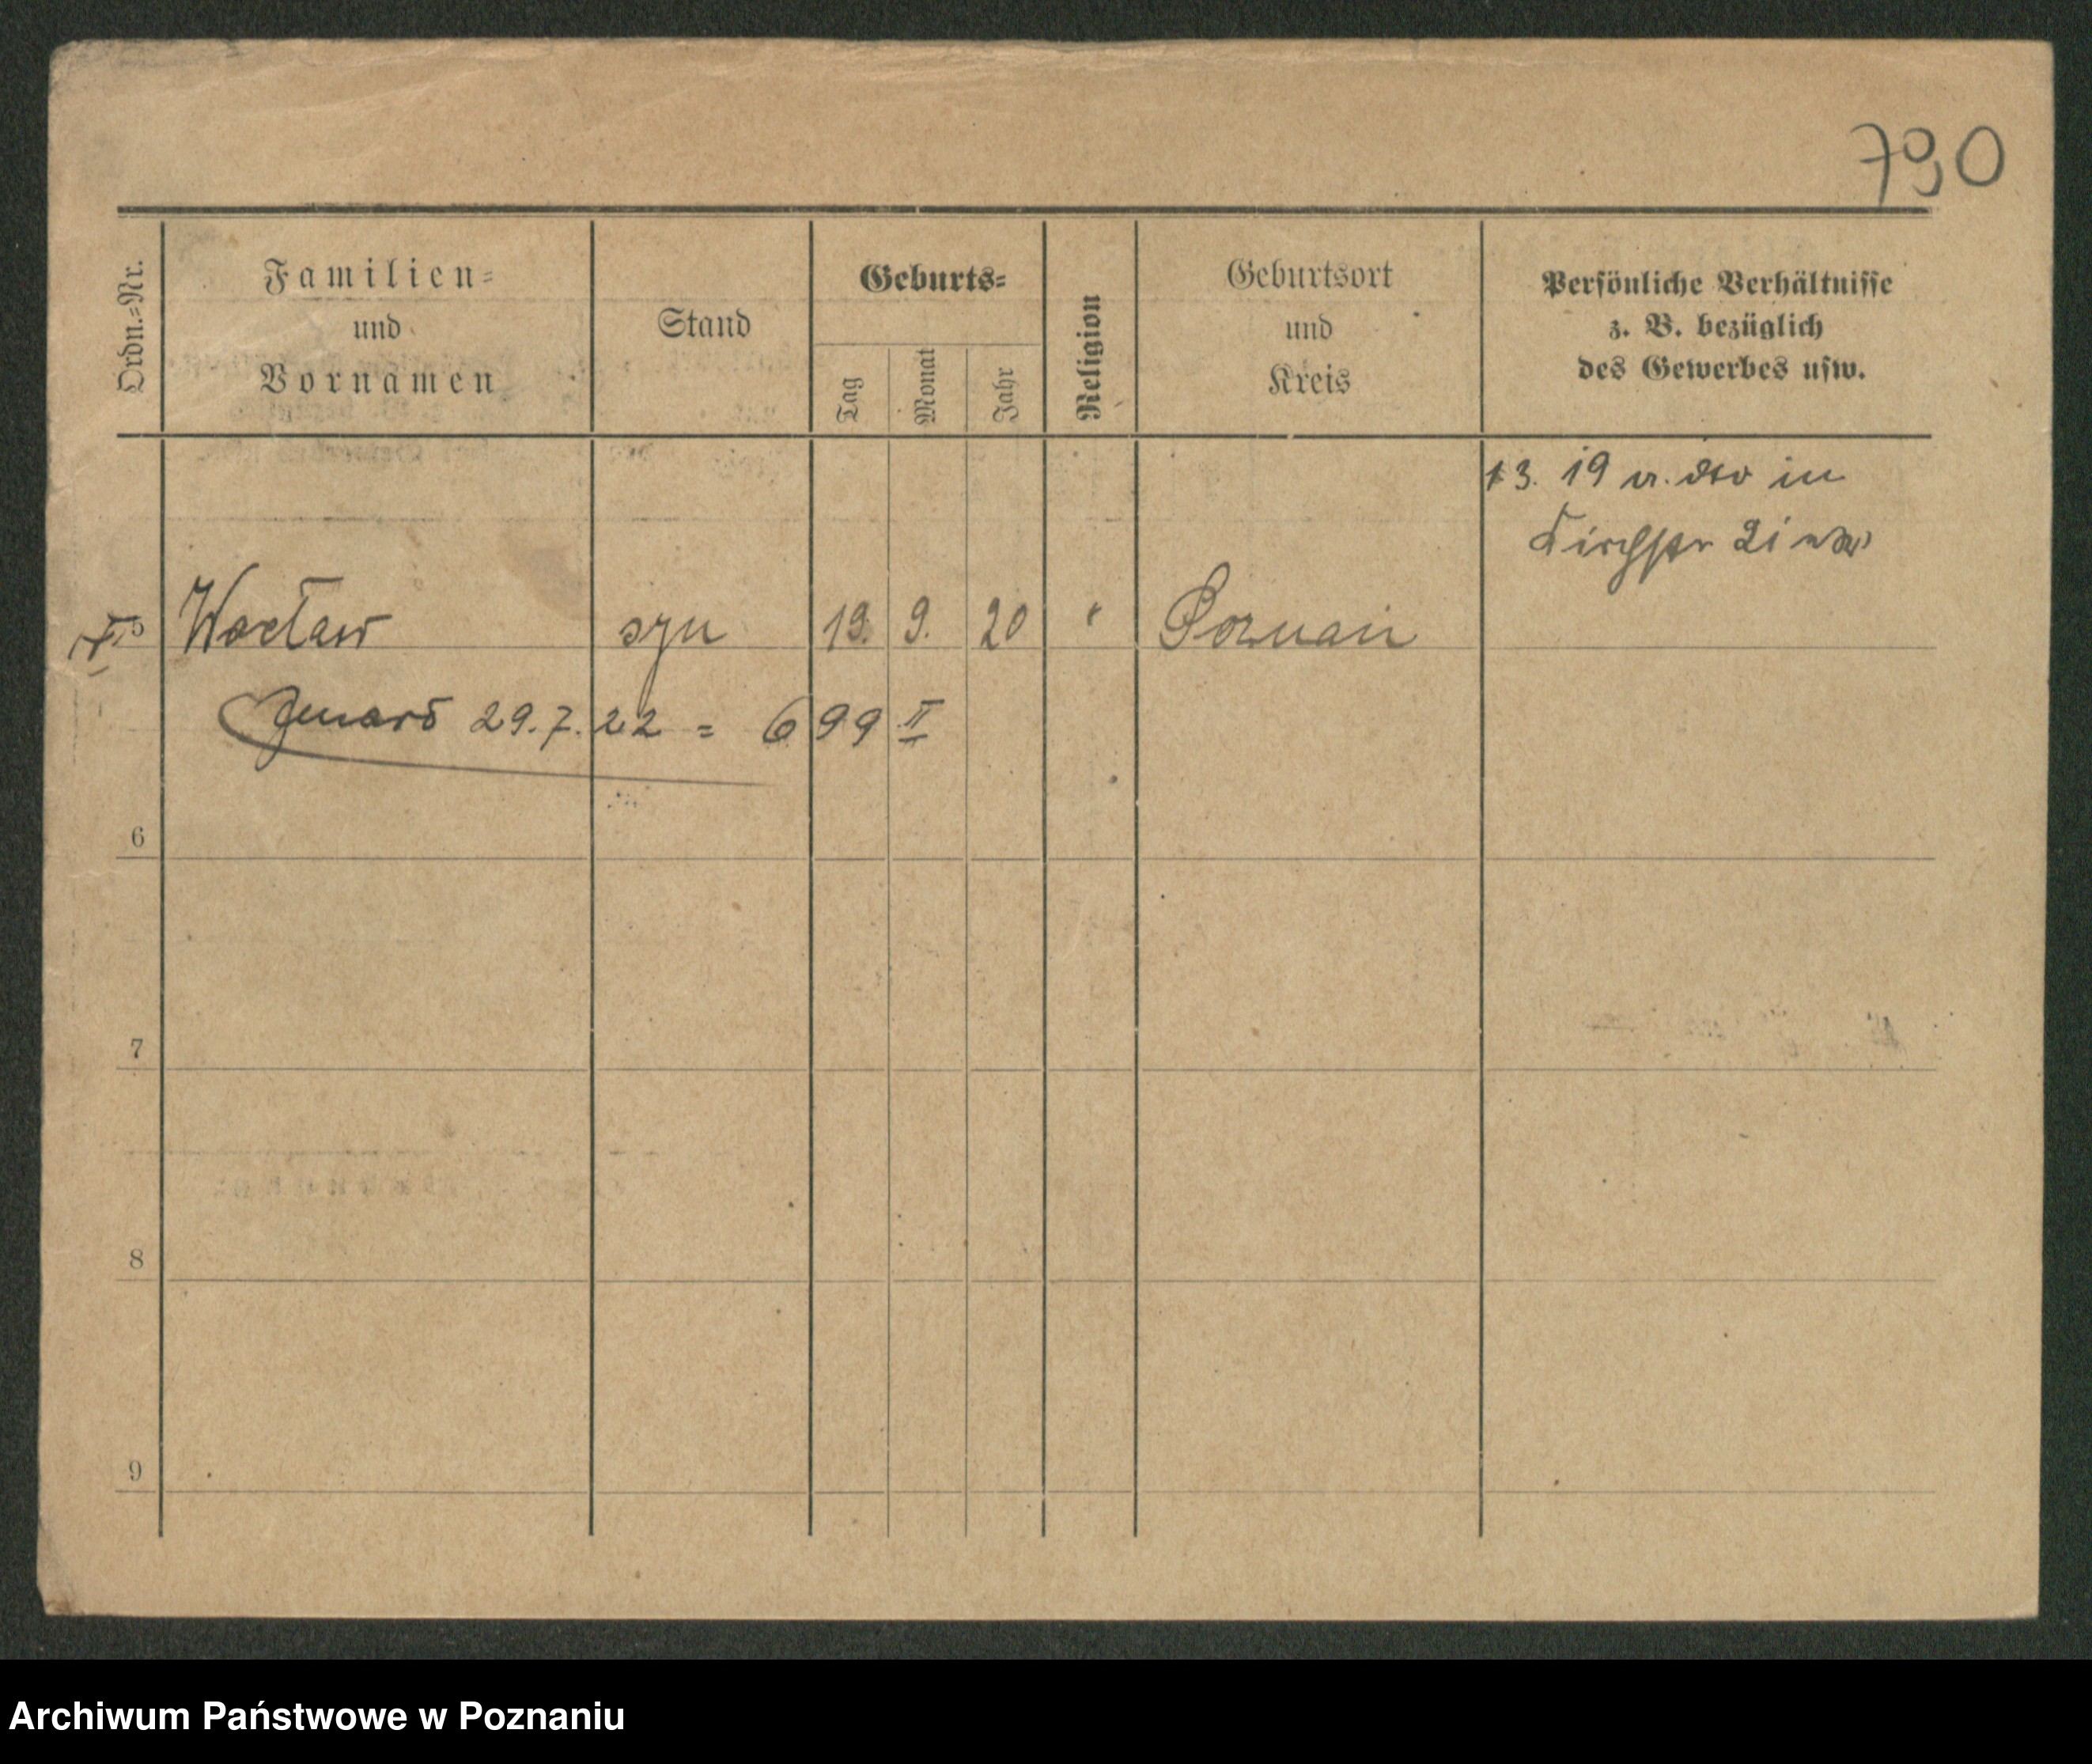 790
Ordn.-Nr.
Familien-
und
Vornamen
Stand
Geburts-
Tag
Monat
Jahr
Religion
Geburtsort
und
Kreis
Persönliche Verhältnisse
z. B. bezüglich
des Gewerbes usw.
13. 19 v. dto in
5 Wacław syn 19. 9. 20 " Poznań
29.7.22 = 699 II
6
7
8
9
Archiwum Państwowe w Poznaniu